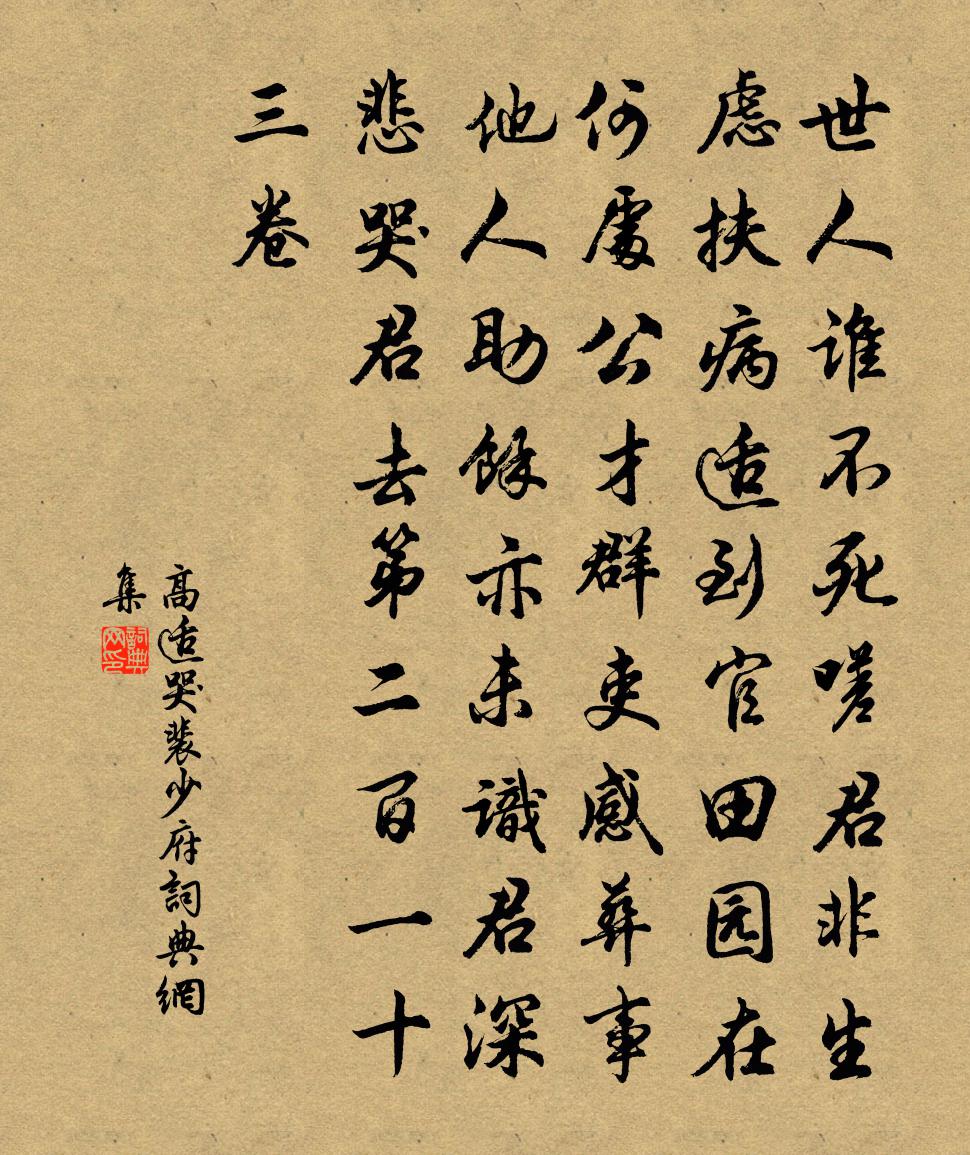 世人谁不死嗟君非生
慮扶病适到官田园在
何處公才群吏感葬事
他人助馀亦未識君深
悲哭君去第二百一十
三卷
高适哭裴少府詞典網
集
詞典网印